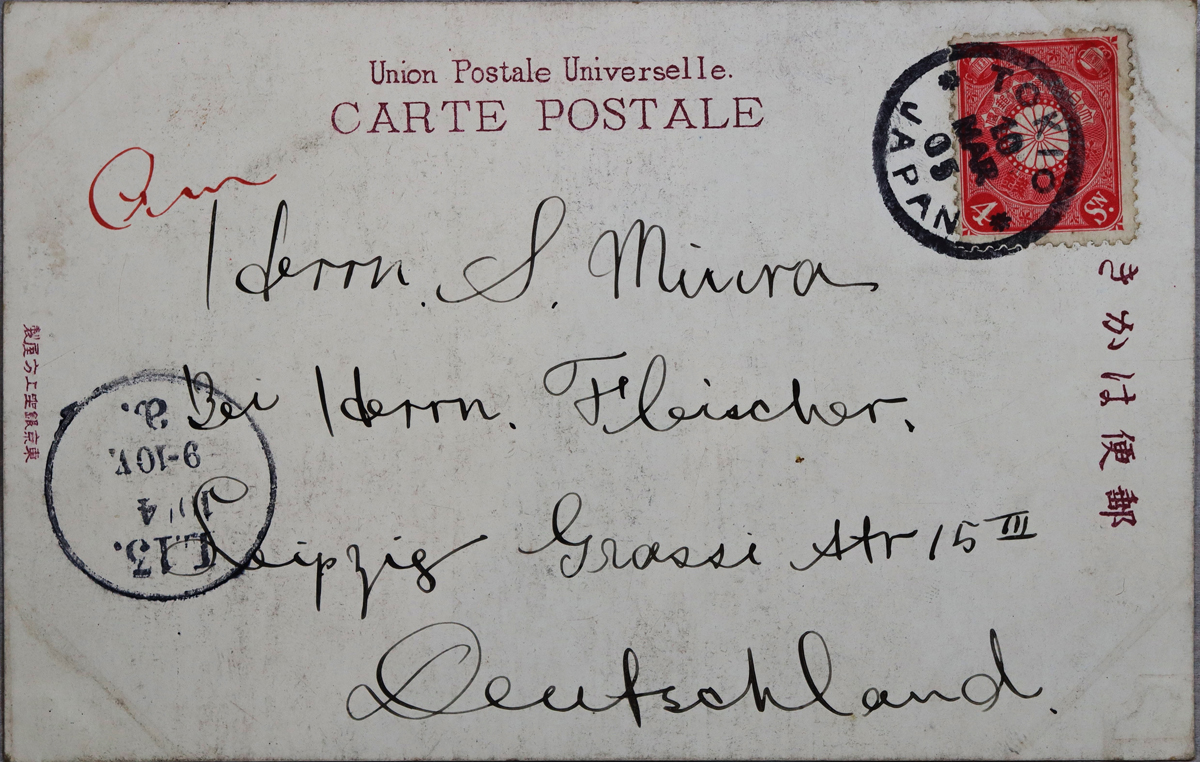 Union Postale Universelle.
CARTE POSTALE
TOKIO
10
MAR
05
JAPAN
4 Sn.
Herrn. S. Miura
Bei Herrn. Fleischer.
Leipzig Grassi Str 15 III
Deutschland.
きかは便郵
製屋方上座銀京東
L.13.
4
9-10V.
a.